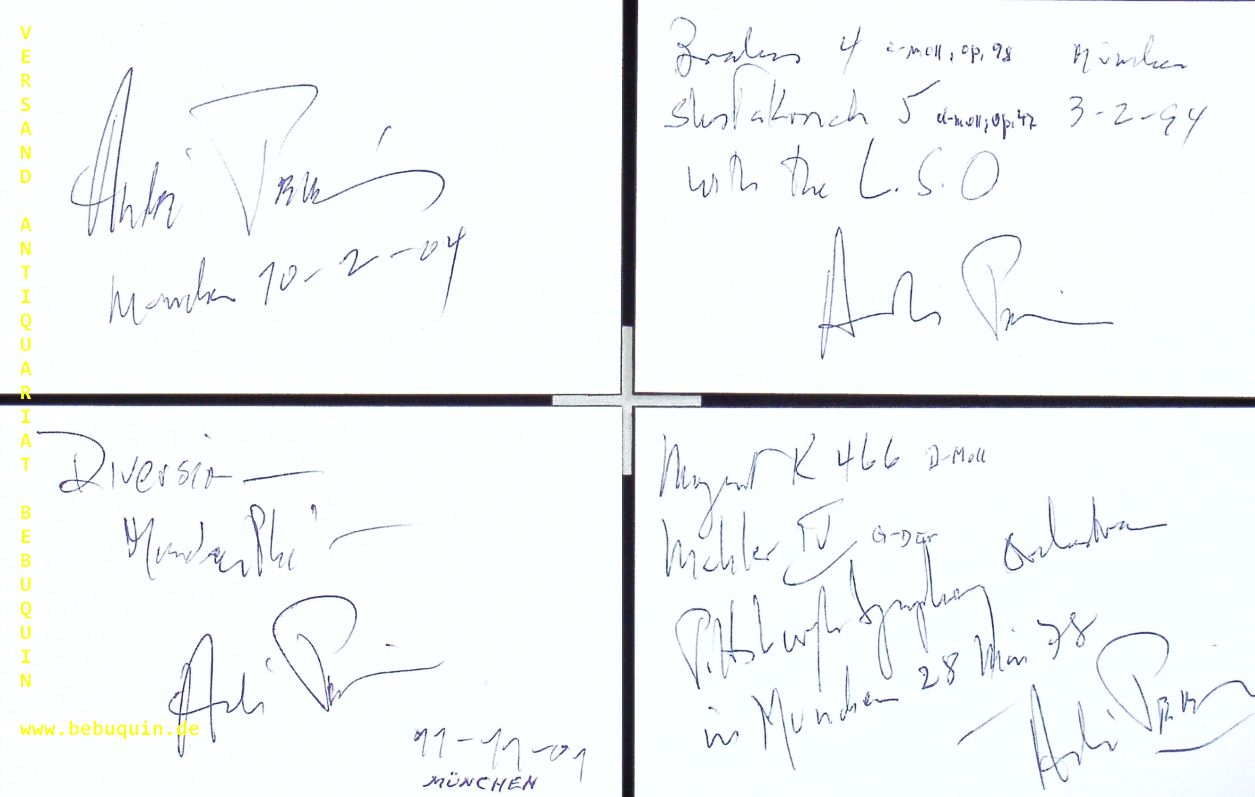 VERSAND ANTIQUARIAT BEBUQUIN
www.bebuquin.de
André Previn
München 10-2-04
Brahms 4 e-moll, op. 98 München
Shostakovich 5 d-moll, op. 47 3-2-94
with the L.S.O
André Previn
Diversions
André Previn
11-11-01
MÜNCHEN
Mozart K 466 D-Moll
Mahler IV G-Dur
Pittsburgh Symphony Orchestra
in München 28 Mai 78
André Previn